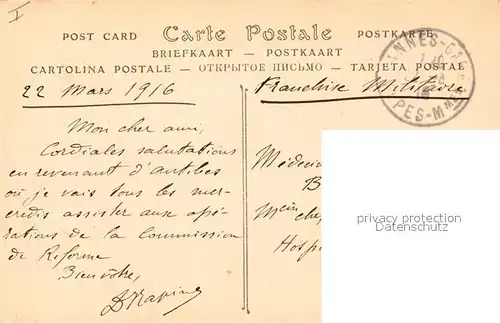 I
POST CARD Carte Postale POSTKARTE
BRIEFKAART — POSTKAART
CARTOLINA POSTALE — ОТКРЫТОЕ ПИСЬМО — TARJETA POSTAL
CANNES-GARE
PES-MMES
22 Mars 1916
Franchise Militaire
Mon cher ami,
Cordiales salutations
en revenant d'Antibes
où je vais tous les mer-
credis assister aux opé-
rations de la Commission
de Réforme
Bien vôtre,
Médecin
B
Mein che
Hosp
privacy protection
Datenschutz